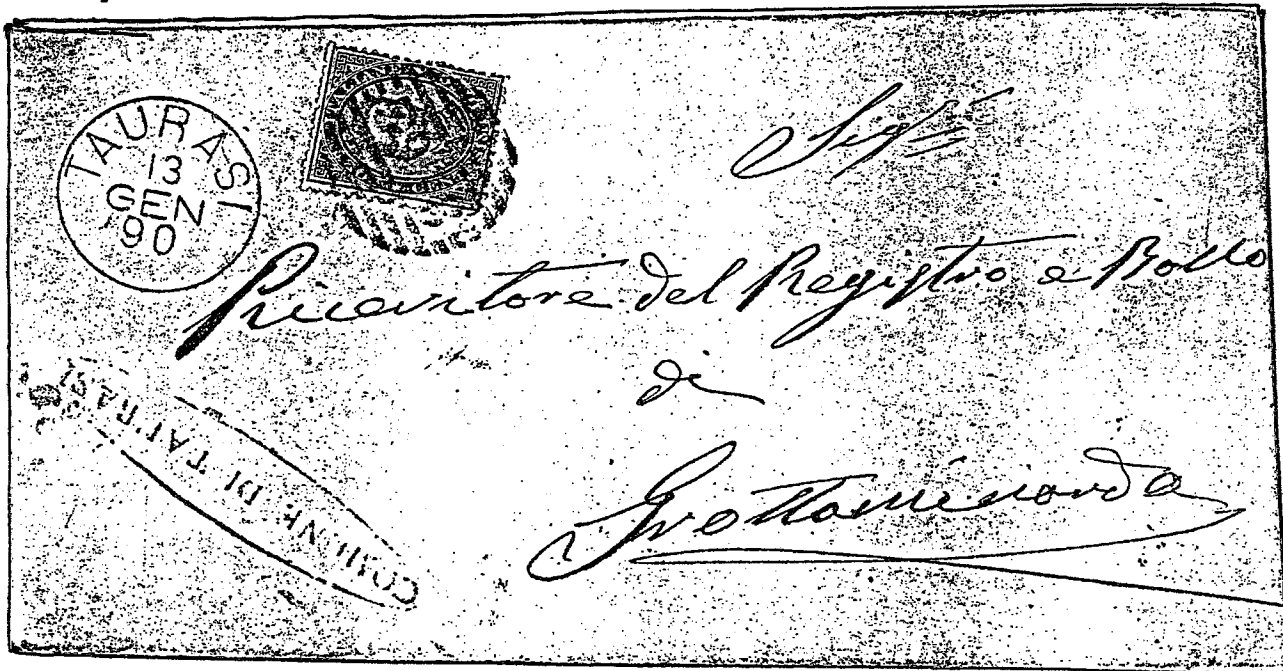 TAURASI
13
GEN
90
Sig.r
Ricevitore del Registro e Bollo
di
Grottaminarda
COMUNE DI TAURASI